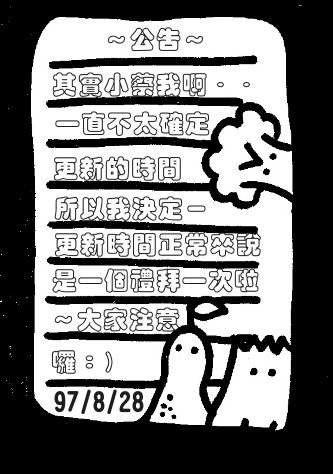 ～公告～
其實小蔡我啊‧‧
一直不太確定
更新的時間
所以我決定－
更新時間正常來說
是一個禮拜一次啦
～大家注意
囉：）
97/8/28